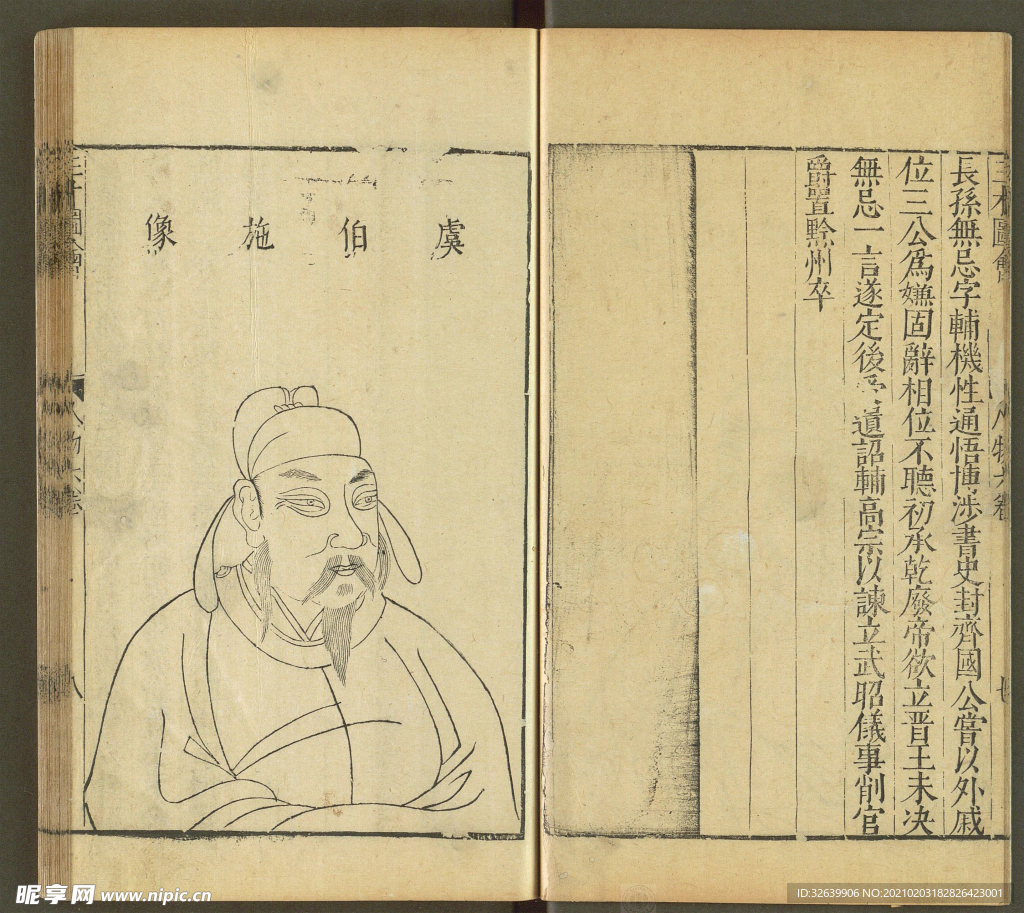 三才圖會
人物六卷
七
長孫無忌字輔機性通悟博涉書史封齊國公嘗以外戚
位三公為嫌固辭相位不聽初承乾廢帝欲立晋王未决
無忌一言遂定後受遺詔輔高宗以諫立武昭儀事削官
爵置黔州卒
虞伯施像
三才圖會
人物六卷
八
昵享网 www.nipic.cn
ID:32639906 NO:20210203182826423001